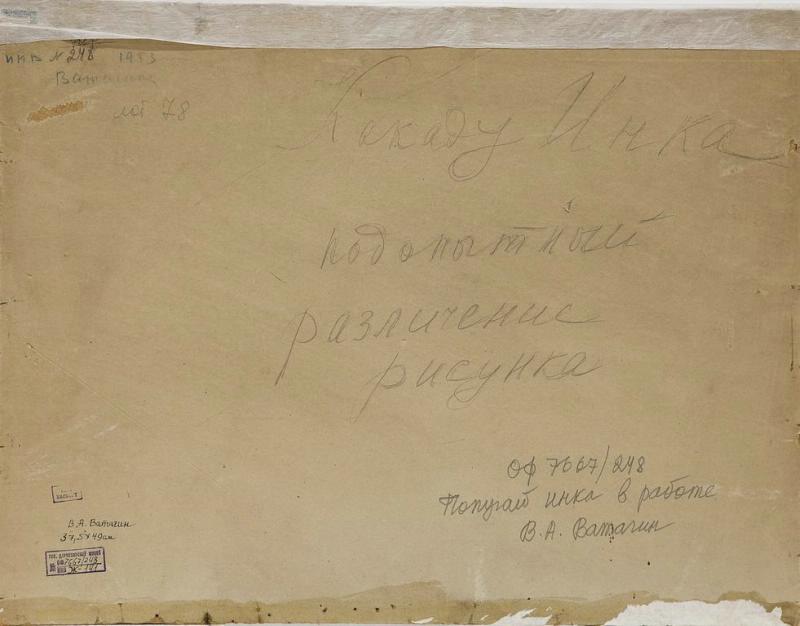 инв № 248 1953
Ватагин
лот 78
Какаду Инка
подопытный
различение
рисунка
ОФ 7667/248
Попугай инка в работе
В.А. Ватагин
В.А. Ватагин
37,5x49см
ГОС. ДАРВИНОВСКИЙ МУЗЕЙ
ОФ 7667/248
Ж-141